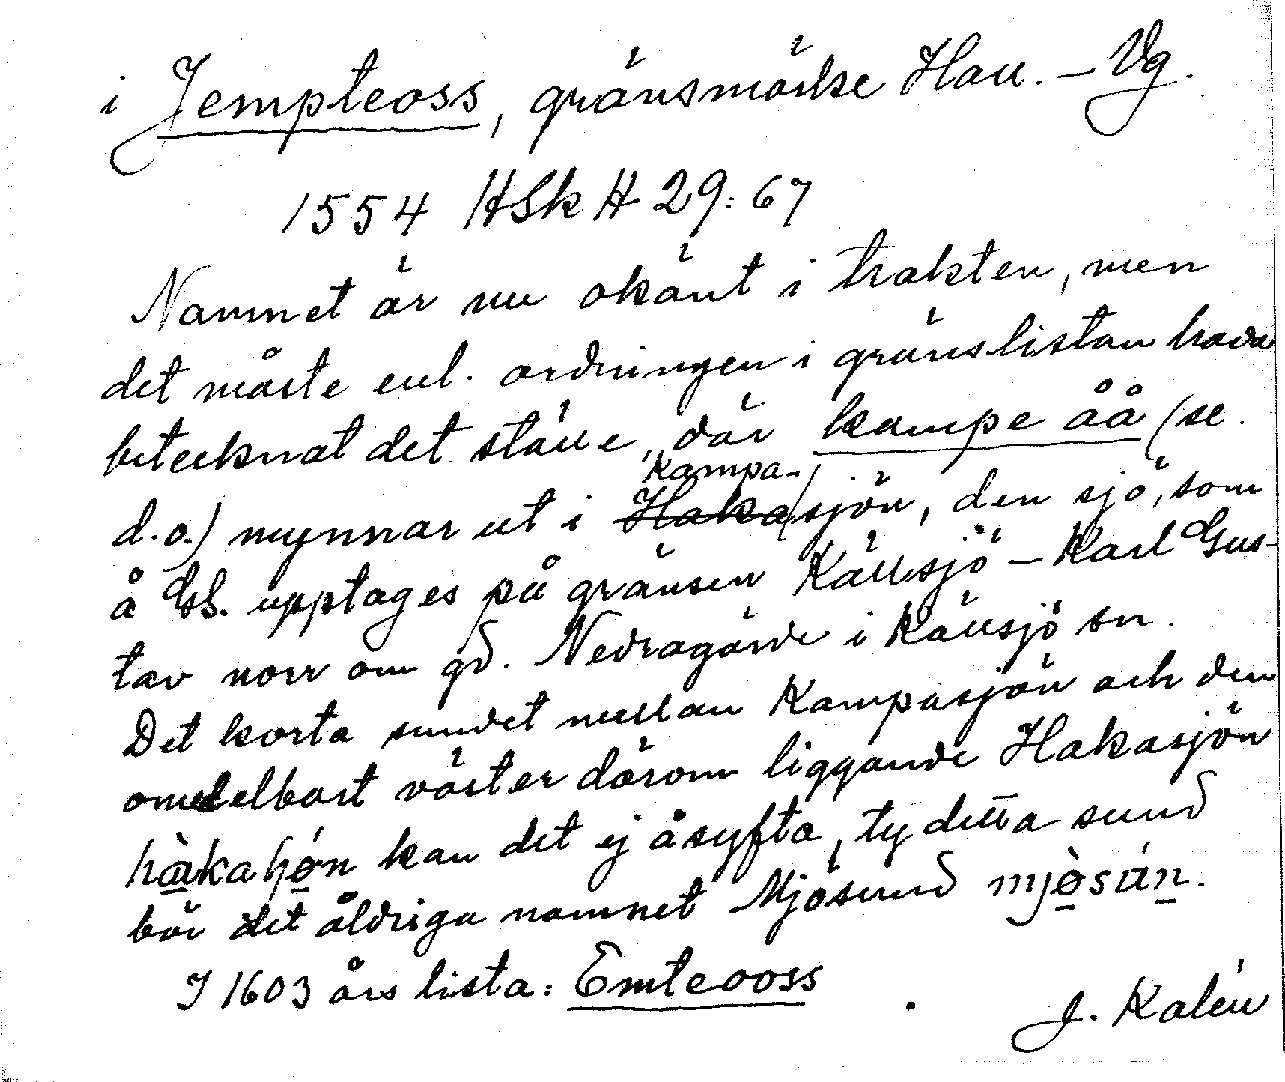 i Jempteoss, gränsmärke Hall. – Vg.
1554 HSkH 29:67
Namnet är nu okänt i trakten, men
det måste enl. ordningen i gränslistan hava
betecknat det ställe, där kampe åå (se
d.o.) mynnar ut i Haka Kampa-sjön, den sjö, som
å GS. upptages på gränsen Källsjö – Karl Gus-
tav norr om gd. Nedragärde i Källsjö sn.
Det korta sundet mellan Kampasjön och den
omedelbart väster därom liggande Hakasjön
kan det ej åsyfta, ty detta sund
bär det åldriga namnet Mjösund
I 1603 års lista: Emteooss
J. Kalén